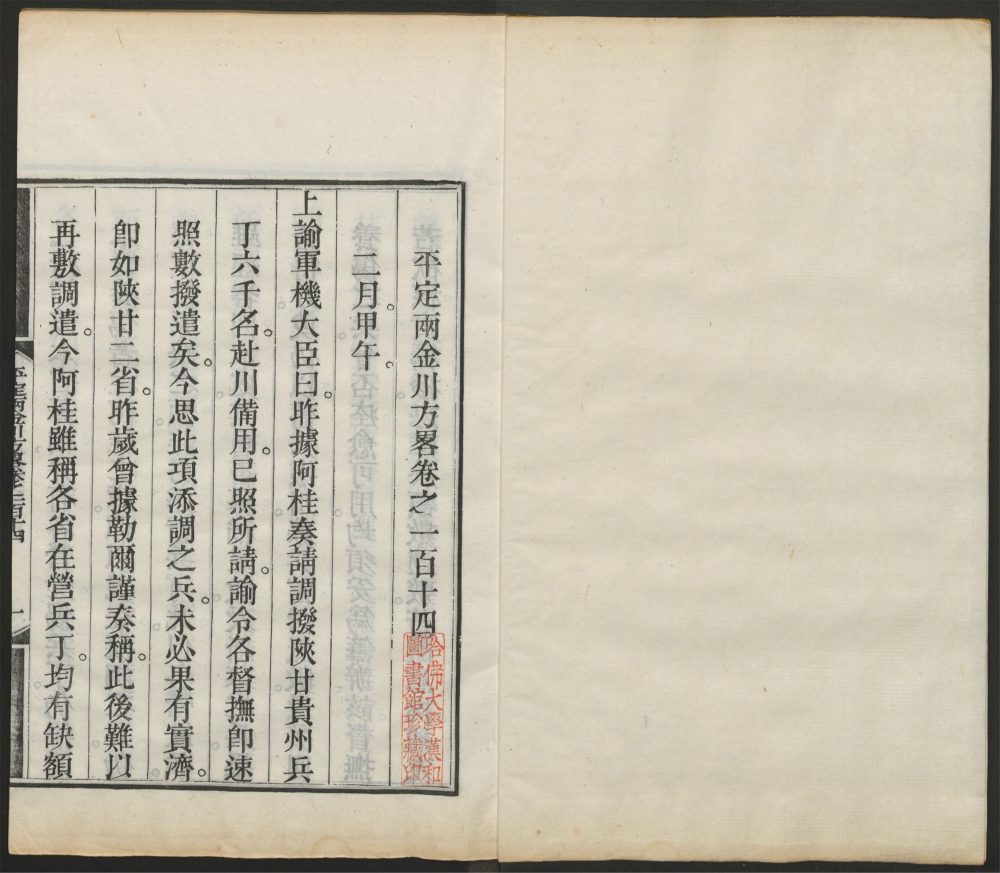 平定兩金川方畧卷之一百十四
哈佛大學漢和
圖書館珍藏印
二月甲午。
上諭軍機大臣曰昨據阿桂奏請調撥陝甘貴州兵
丁六千名。赴川備用。已照所請。諭令各督撫卽速
照數撥遣矣。今思此項添調之兵。未必果有實濟。
卽如陝甘二省。昨歲曾據勒爾謹奏稱。此後難以
再敷調遣。今阿桂雖稱各省在營兵丁。均有缺額
平定兩金川方畧卷之一百十四 一